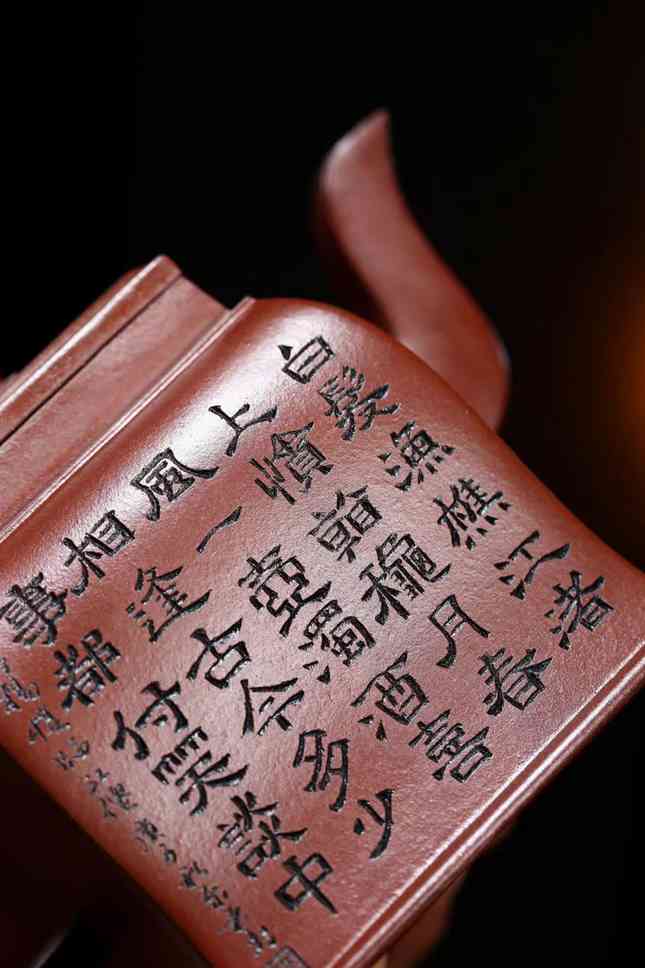 白髮漁樵江渚
上慣看穐月春
風一壺濁酒喜
相逢古今多少
事都付笑談中